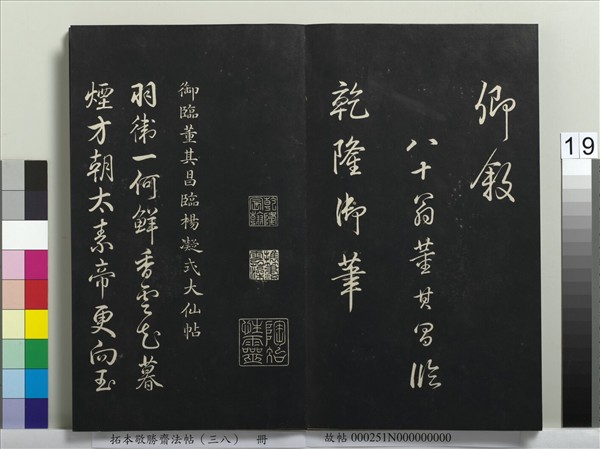 卿敘
八十翁董其昌臨
乾隆御筆
乾隆宸翰
陶冶性靈
御臨董其昌臨楊凝式大仙帖
羽衛一何鮮香雲起暮
煙方朝太素帝更向玉
19
拓本敬勝齋法帖(三八) 冊
故帖 000251N000000000